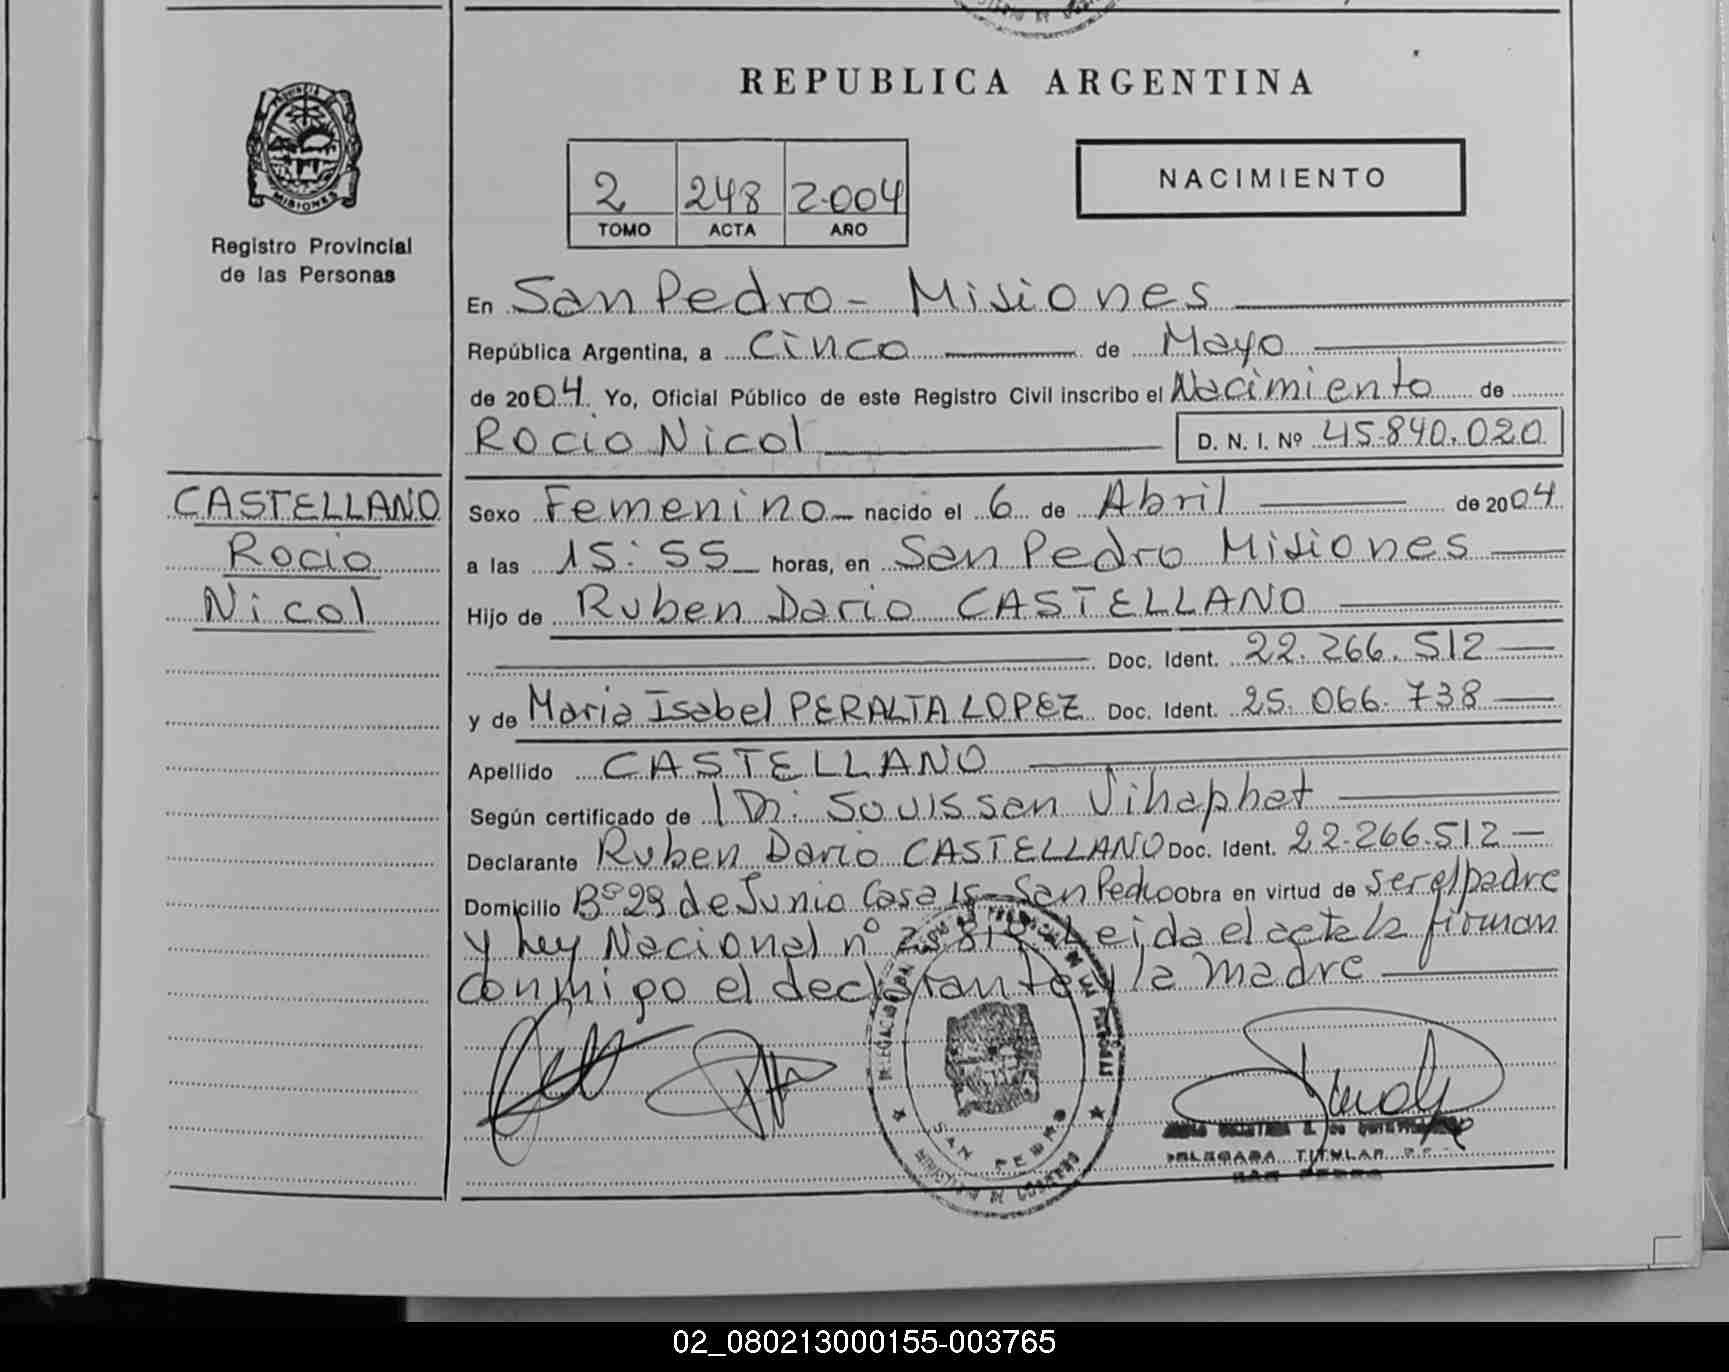 REPUBLICA ARGENTINA
PROVINCIA DE
MISIONES
Registro Provincial
de las Personas
2 248 2.004
TOMO ACTA AÑO
NACIMIENTO
En San Pedro - Misiones
República Argentina, a Cinco de Mayo
de 2004. Yo, Oficial Público de este Registro Civil inscribo el Nacimiento de
Rocio Nicol D. N. I. Nº 45.840.020
CASTELLANO
Rocio
Nicol
Sexo Femenino nacido el 6 de Abril de 2004
a las 15:55 horas, en San Pedro Misiones
Hijo de Ruben Dario CASTELLANO
Doc. Ident. 22.266.512
y de Maria Isabel PERALTA LOPEZ Doc. Ident. 25.066.738
Apellido CASTELLANO
Según certificado de Dr. Souissan
Declarante Ruben Dario CASTELLANO Doc. Ident. 22.266.512
Domicilio Bº 29 de Junio Casa 15 - San Pedro Obra en virtud de ser el padre
y Ley Nacional nº Leida el acta la firman
conmigo el declarante y la madre
SAN PEDRO
DELEGADA TITULAR
SAN PEDRO
02_080213000155-003765